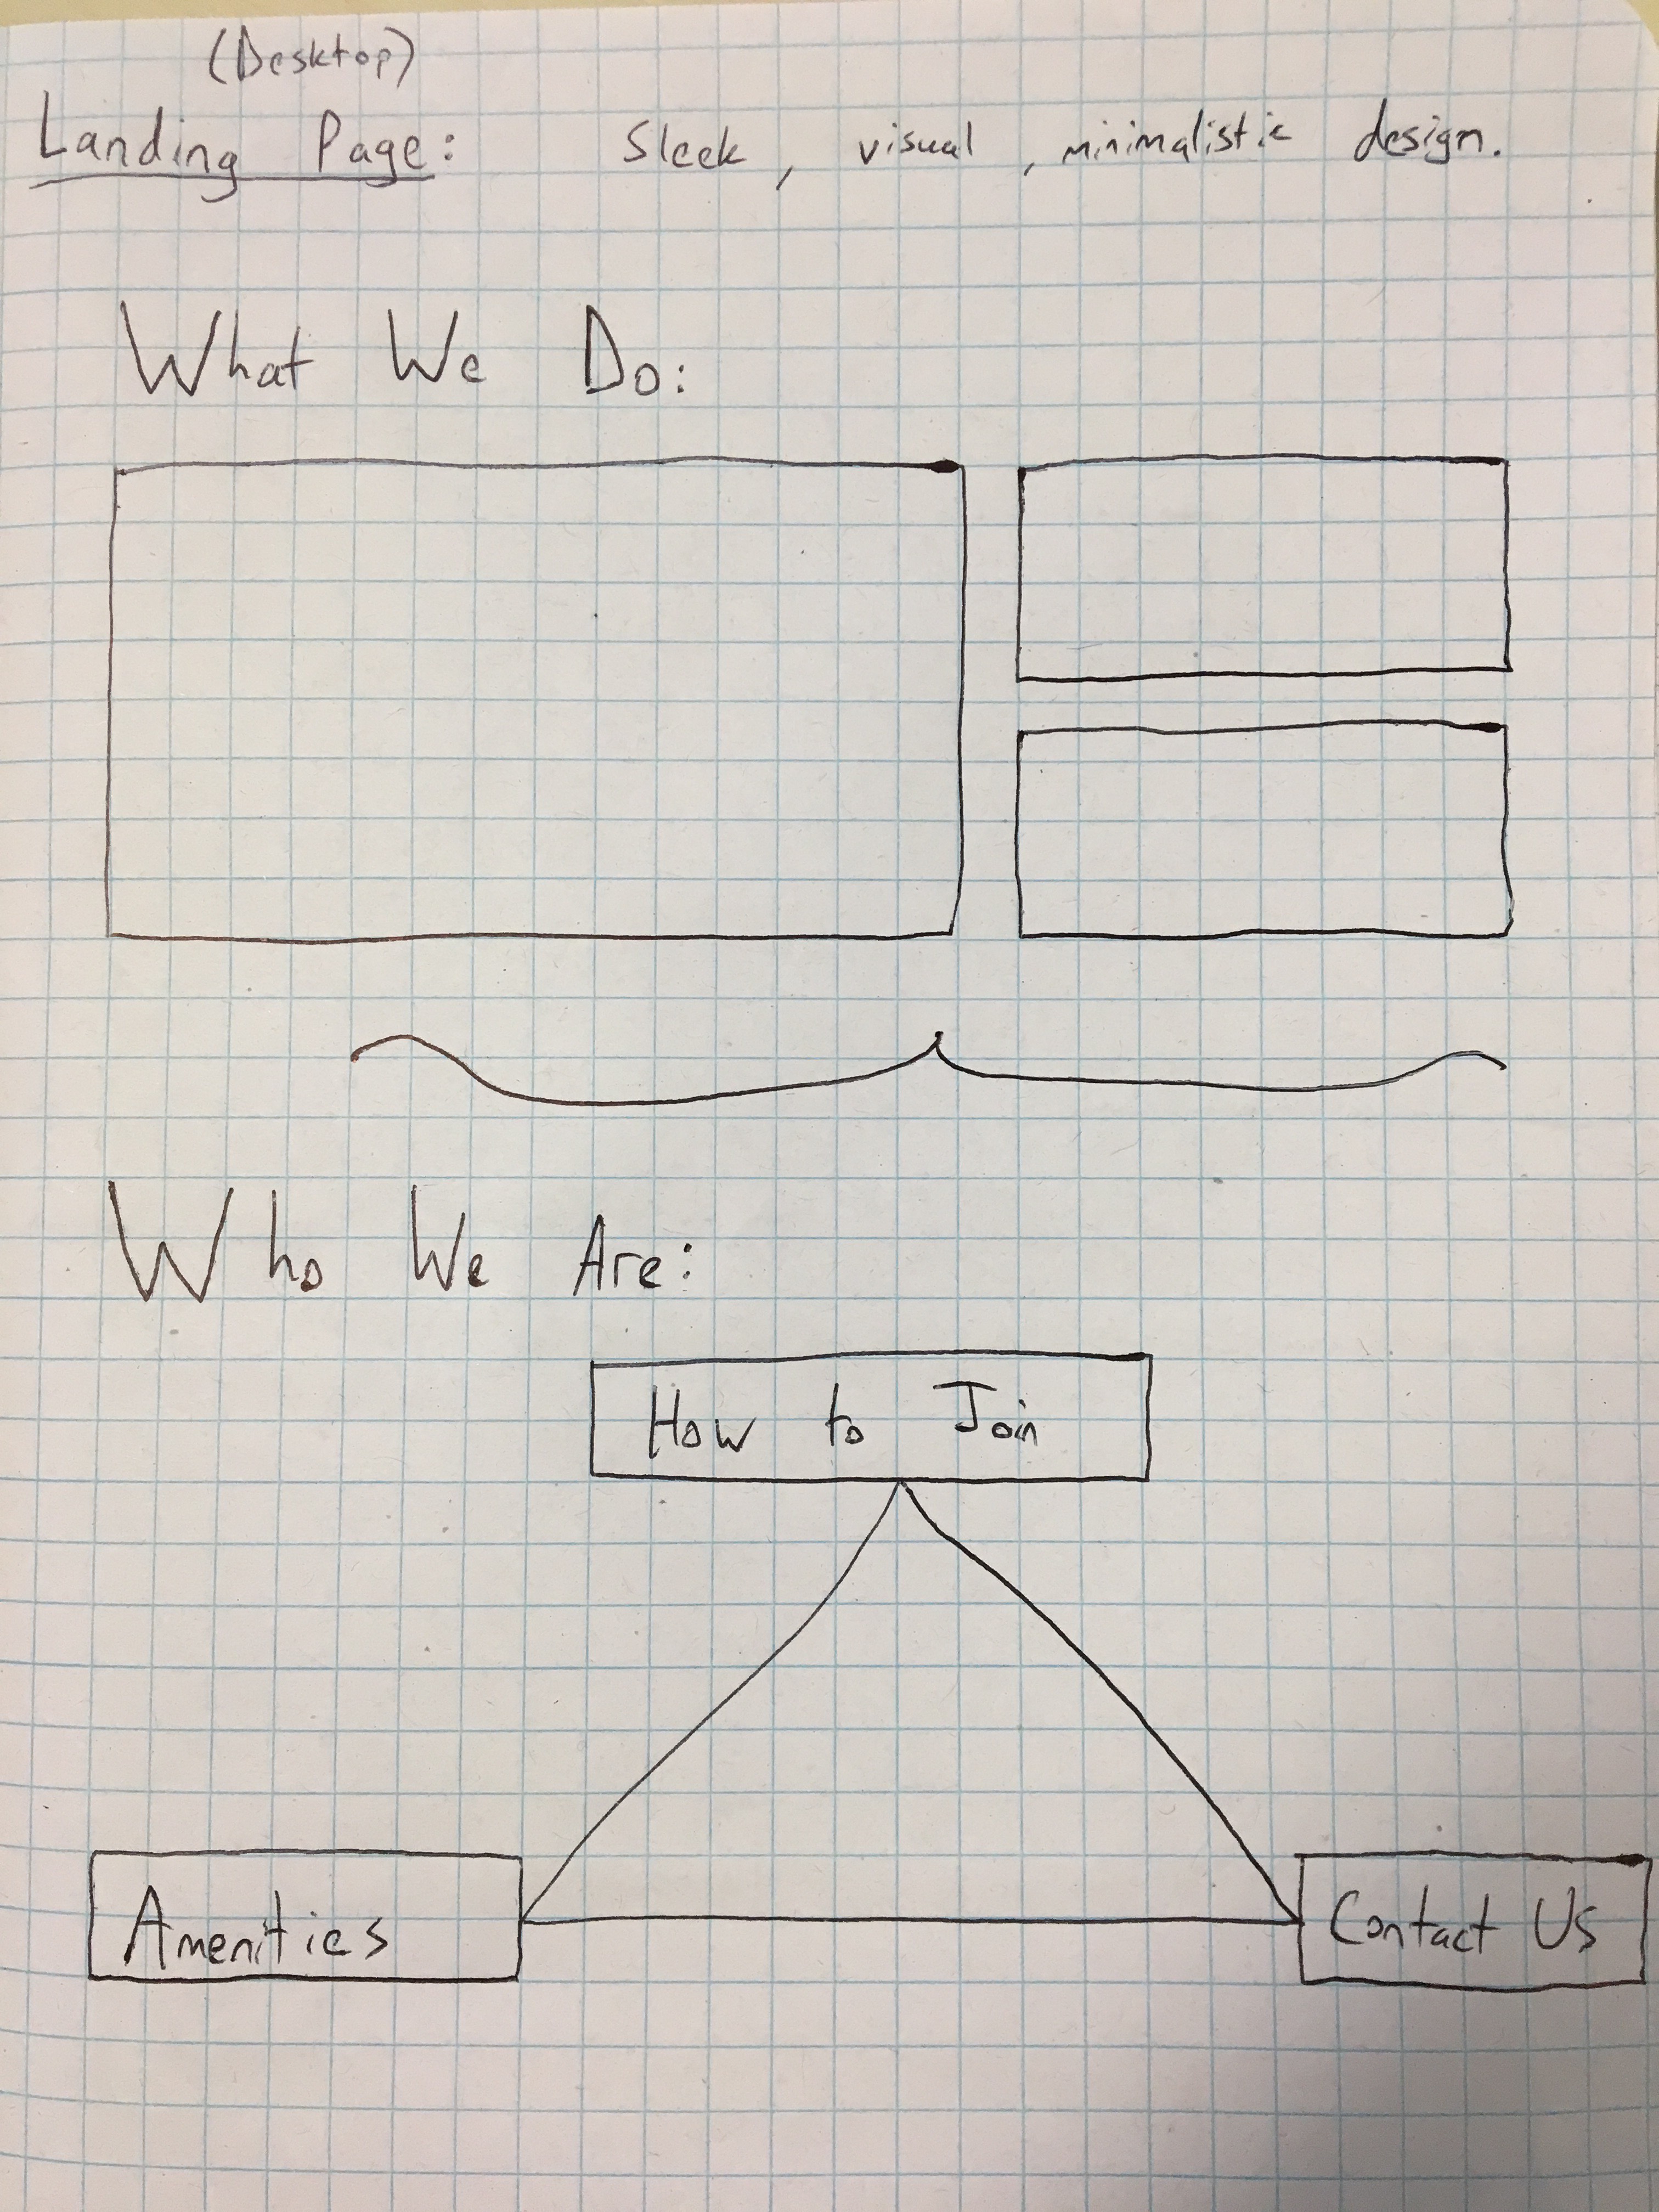 (Desktop)
Landing Page: Sleek, visual, minimalistic design.
What We Do:
Who We Are:
How to Join
Amenities
Contact Us